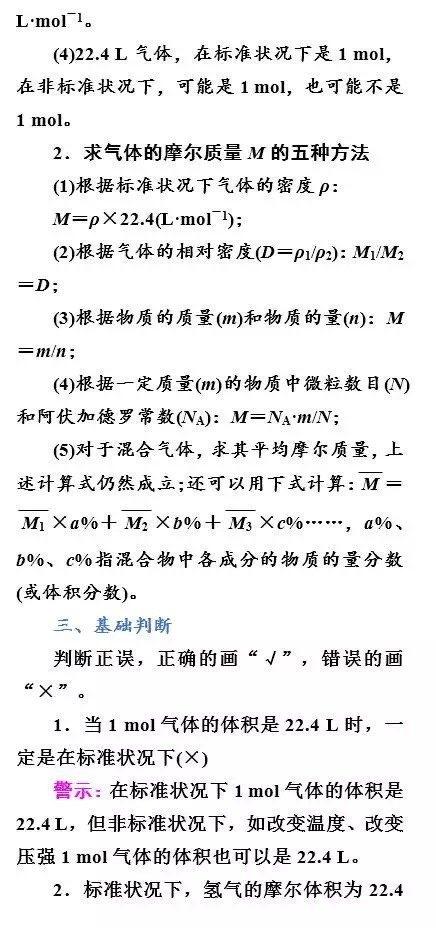 L·mol⁻¹。
(4)22.4 L 气体，在标准状况下是 1 mol，
在非标准状况下，可能是 1 mol，也可能不是
1 mol。
2．求气体的摩尔质量 M 的五种方法
(1)根据标准状况下气体的密度 ρ：
M＝ρ×22.4(L·mol⁻¹)；
(2)根据气体的相对密度(D＝ρ₁/ρ₂)：M₁/M₂
＝D；
(3)根据物质的质量(m)和物质的量(n)：M
＝m/n；
(4)根据一定质量(m)的物质中微粒数目(N)
和阿伏加德罗常数(Nᴀ)：M＝Nᴀ·m/N；
(5)对于混合气体，求其平均摩尔质量，上
述计算式仍然成立；还可以用下式计算：M̅＝
M̅₁×a%＋M̅₂×b%＋M̅₃×c%……，a%、
b%、c%指混合物中各成分的物质的量分数
(或体积分数)。
三、基础判断
判断正误，正确的画“√”，错误的画
“×”。
1．当 1 mol 气体的体积是 22.4 L 时，一
定是在标准状况下(×)
警示：在标准状况下 1 mol 气体的体积是
22.4 L，但非标准状况下，如改变温度、改变
压强 1 mol 气体的体积也可以是 22.4 L。
2．标准状况下，氢气的摩尔体积为 22.4